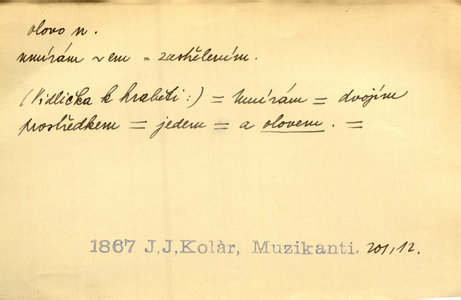 olovo n.
umírám ~em = zastřelením.
(Vidlička k hraběti:) = Umírám = dvojím
prostředkem = jedem = a olovem. =
1867 J,J,Kolàr, Muzikanti. 201,12.